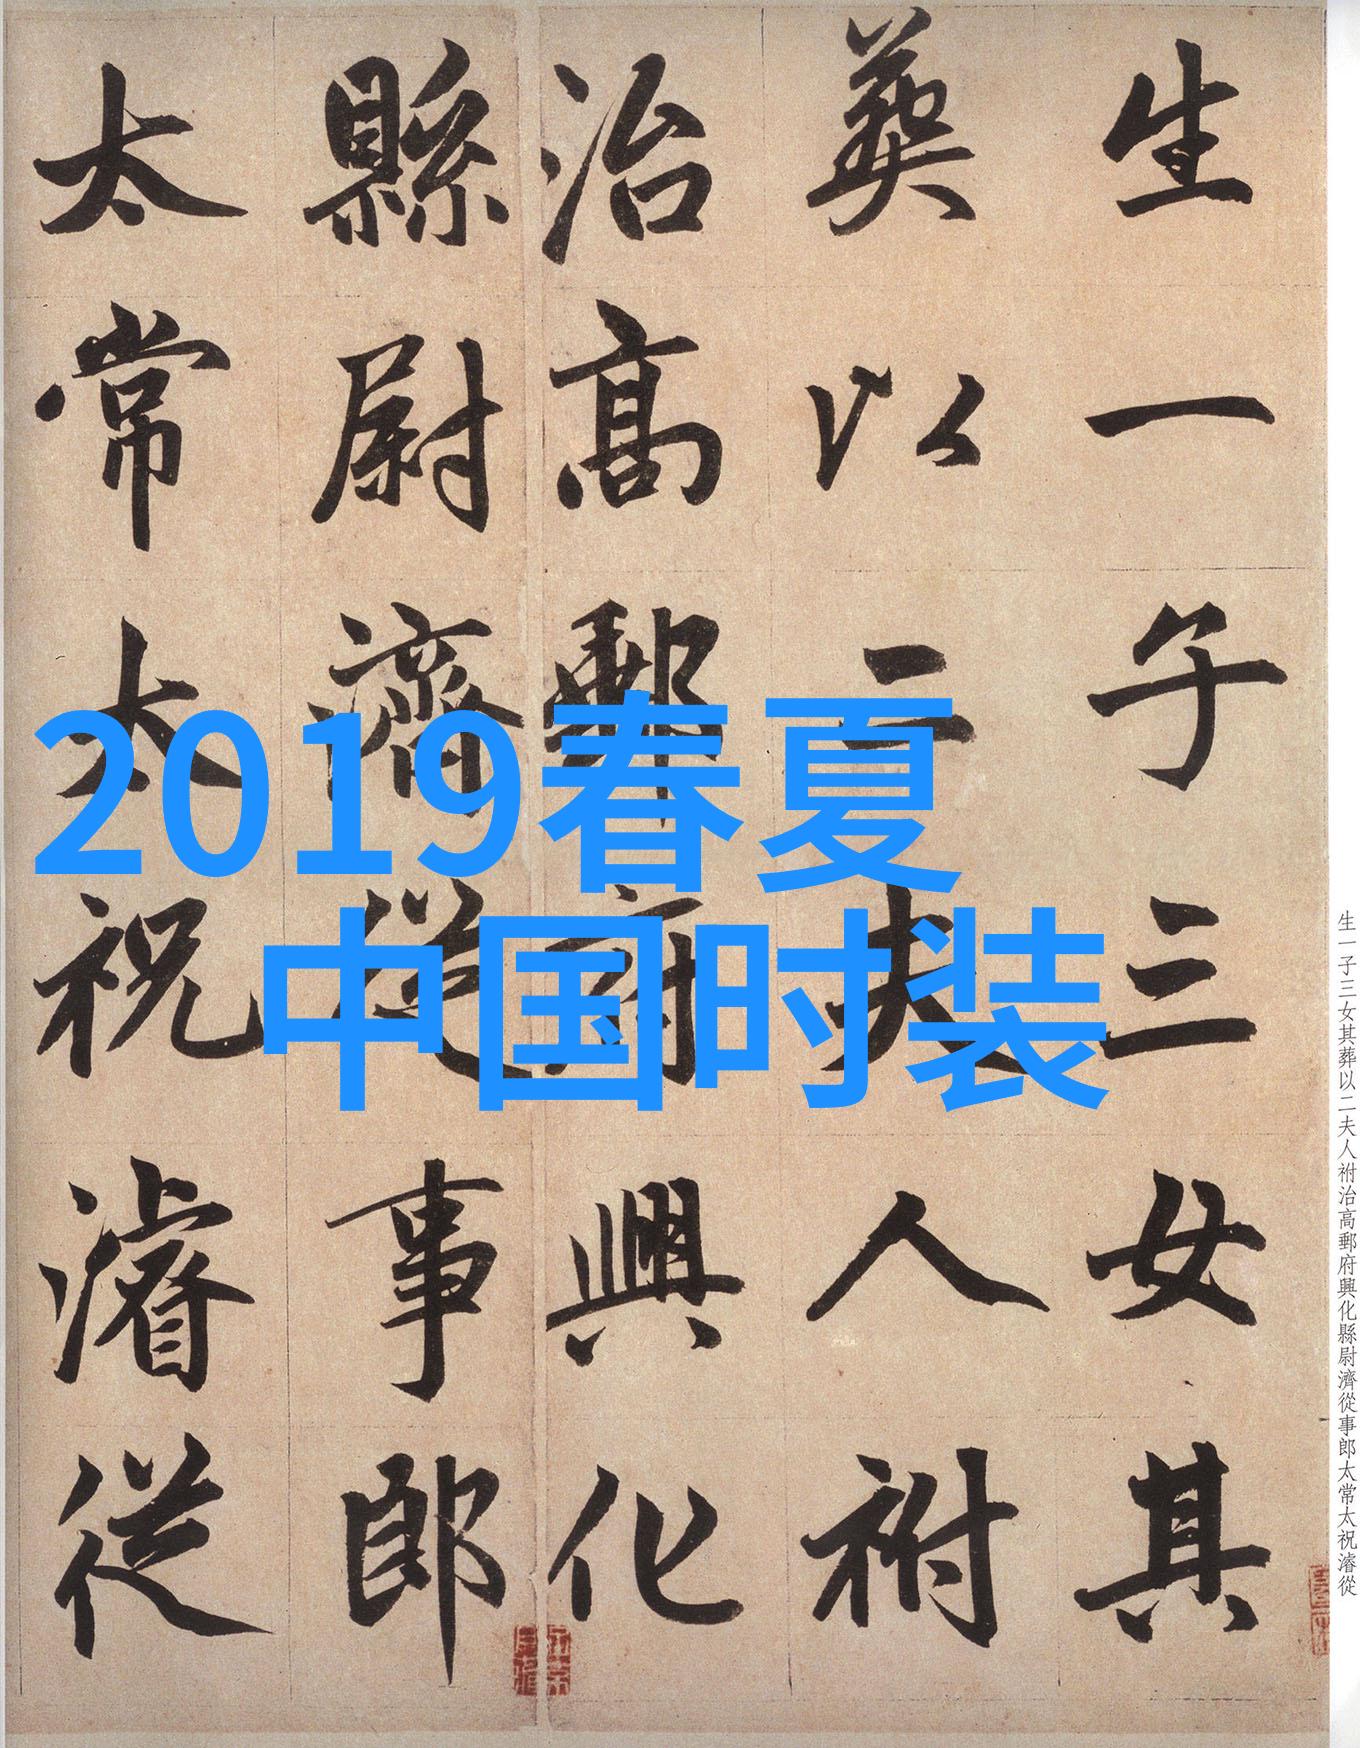 生一子三女其
葬以二夫人祔
治高郵府興化
縣尉濟從事郎
太常太祝濬從
2019春夏
中国时装
生一子三女其葬以二夫人祔治高郵府興化縣尉濟從事郎太常太祝濬從